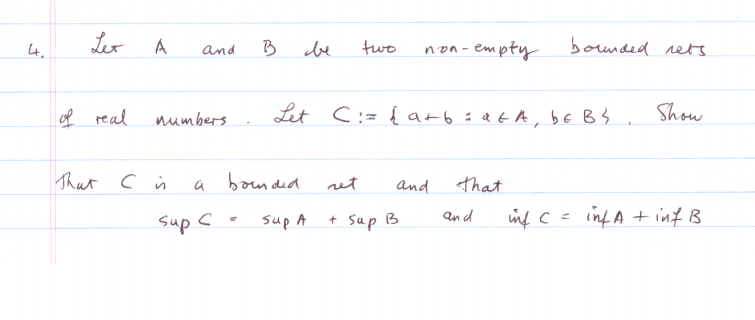 4. Let A and B be two non-empty bounded sets
of real numbers. Let C := { a+b : a ∈ A, b ∈ B}. Show
that C is a bounded set and that
sup C = sup A + sup B and inf C = inf A + inf B